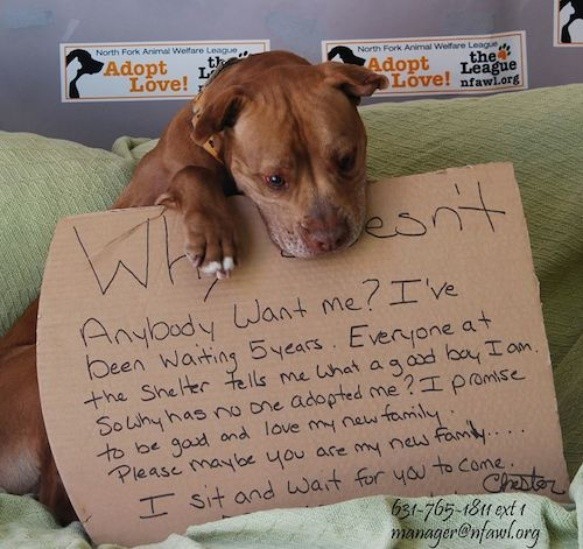 North Fork Animal Welfare League
Adopt
Love!
th
L
North Fork Animal Welfare League
Adopt
Love!
the
League
nfawl.org
Wh esn't
Anybody Want me? I've
been waiting 5 years. Everyone at
the Shelter tells me what a good boy I am.
So Why has no one adopted me? I promise
to be good and love my new family.
Please maybe you are my new family....
I sit and wait for you to come.
Chester
631-765-1811 ext 1
manager@nfawl.org